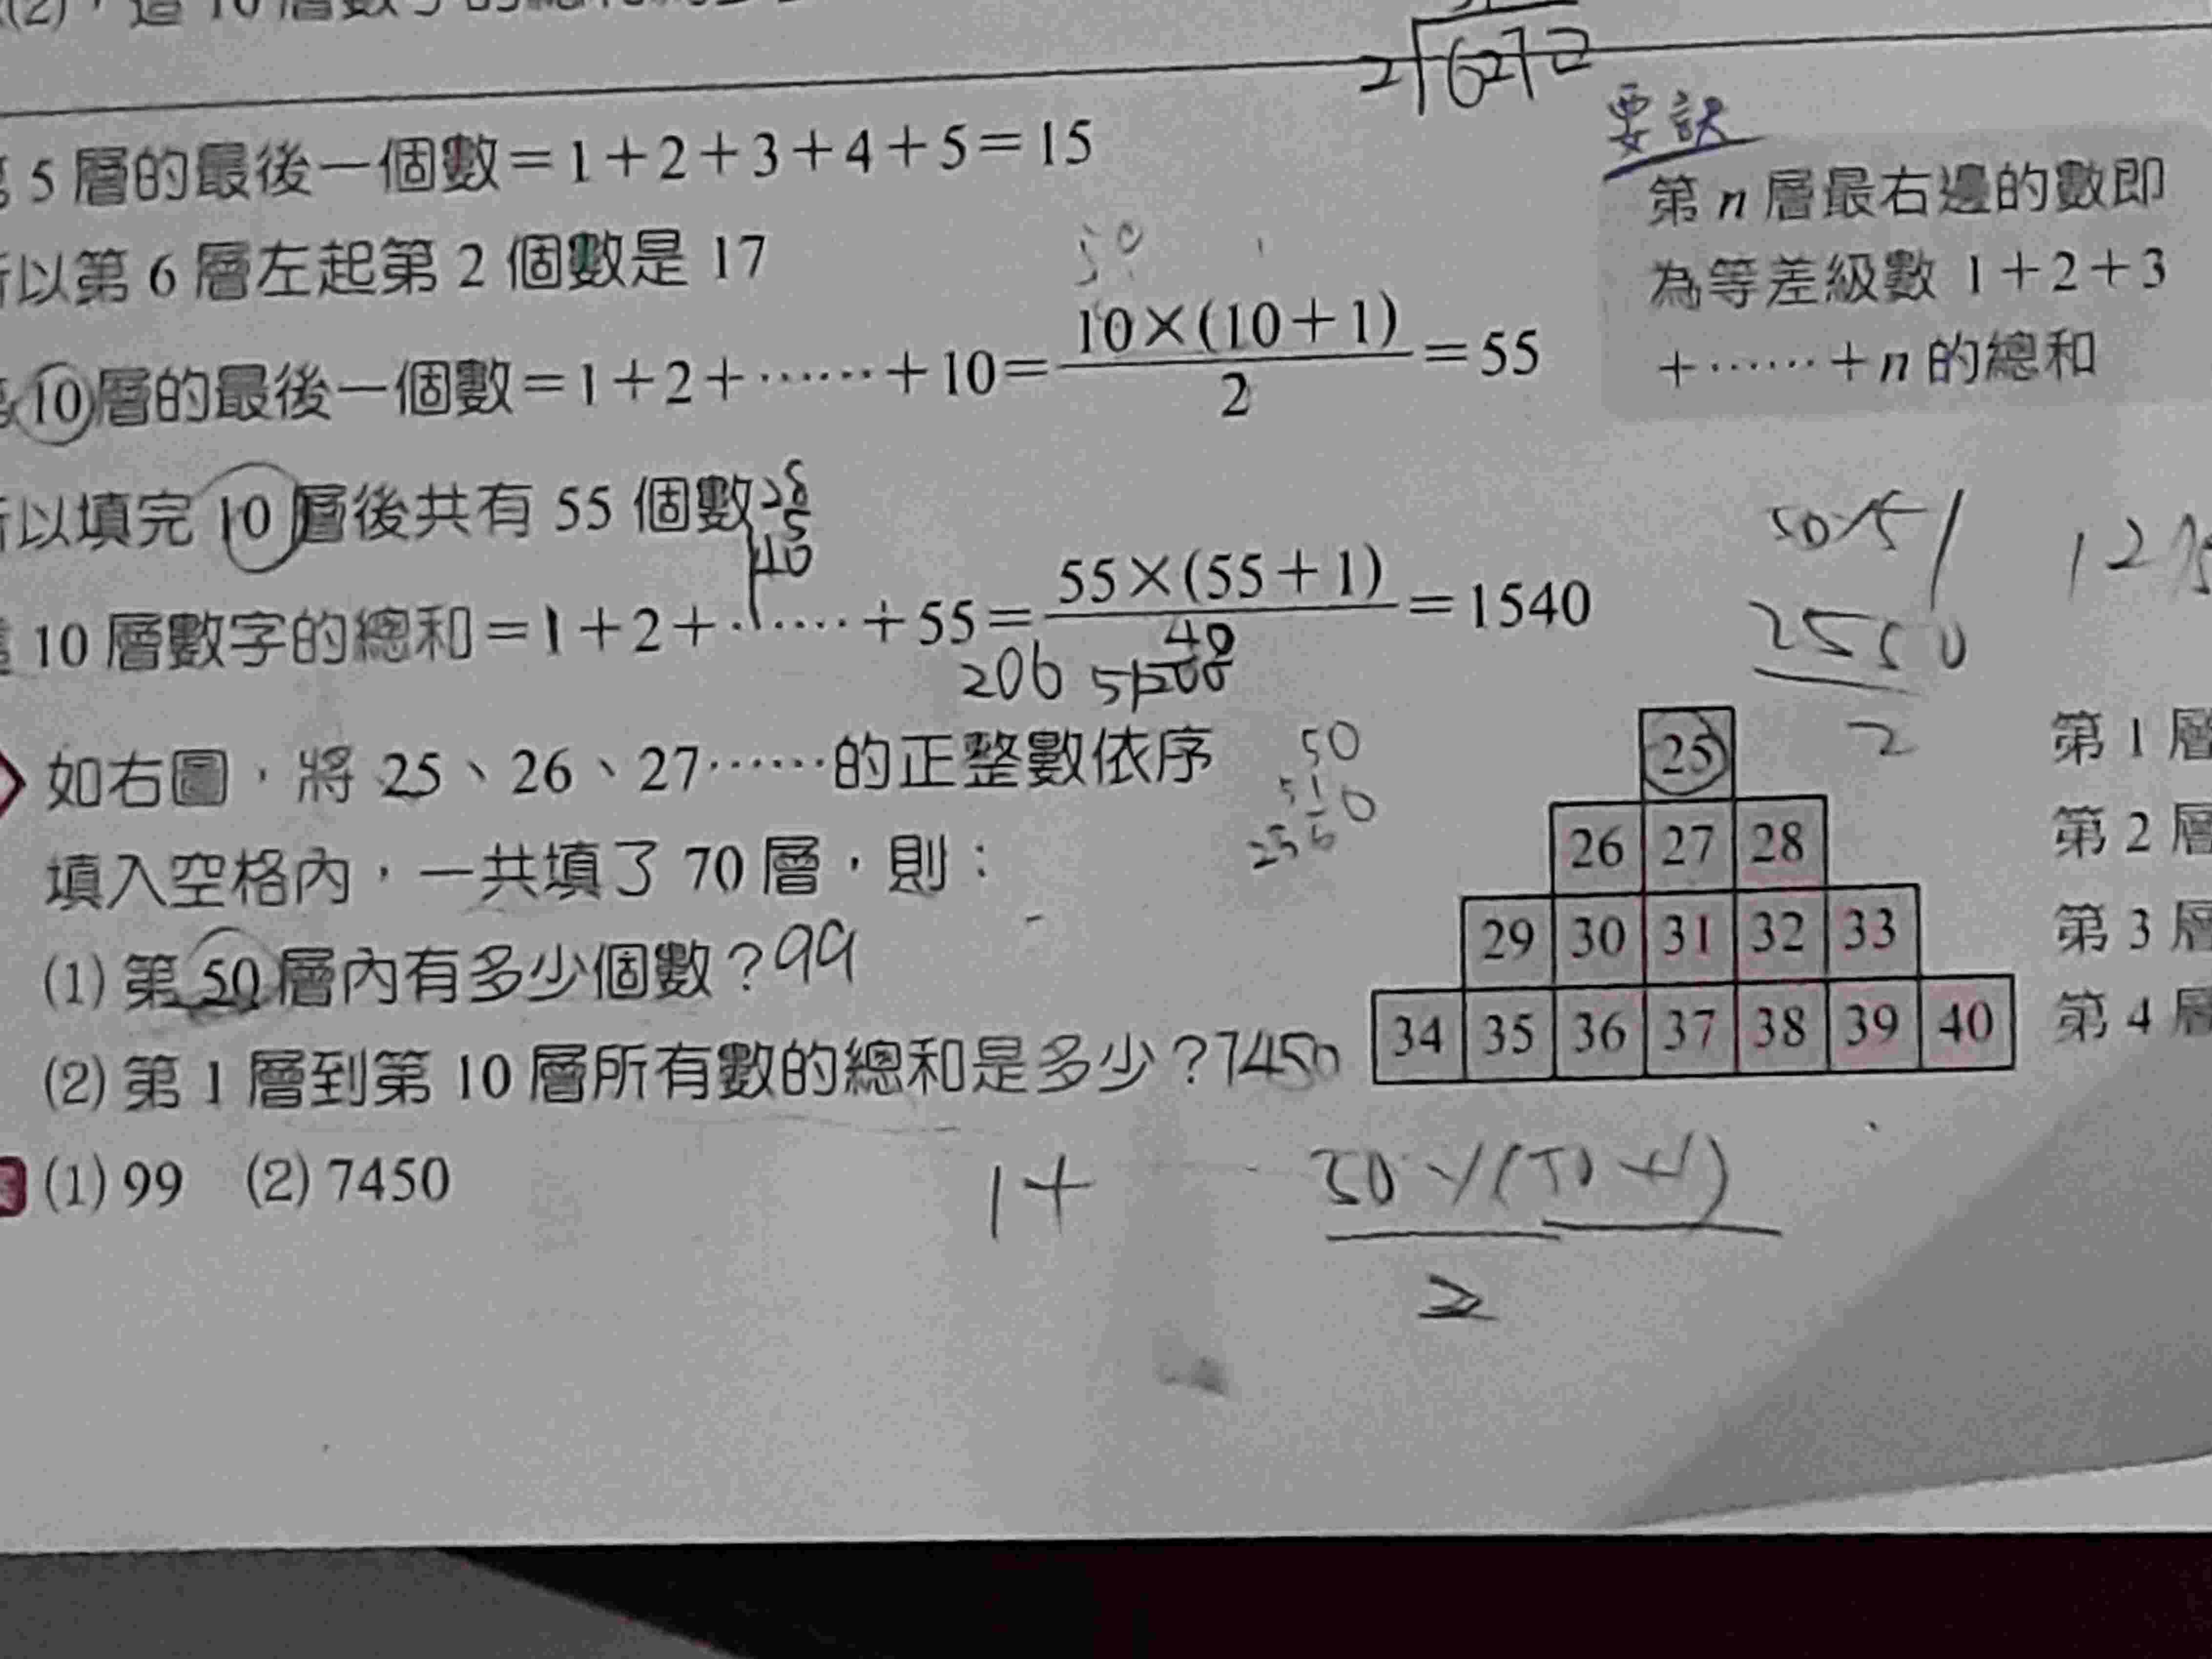 (2)
2 6272
要訣
5 層的最後一個數=1+2+3+4+5=15
以第 6 層左起第 2 個數是 17
50
10 層的最後一個數=1+2+……+10=10×(10+1)/2=55
第 n 層最右邊的數即
為等差級數 1+2+3
+……+n 的總和
以填完 10 層後共有 55 個數
40
10 層數字的總和=1+2+……+55=55×(55+1)/2=1540
206
50×51
2550
2
如右圖,將 25、26、27……的正整數依序
填入空格內,一共填了 70 層,則:
50
51
(1) 第 50 層內有多少個數?99
(2) 第 1 層到第 10 層所有數的總和是多少?7450
25 第 1 層
26 27 28 第 2 層
29 30 31 32 33 第 3 層
34 35 36 37 38 39 40 第 4 層
(1) 99 (2) 7450
1+
50×(50+1)
2